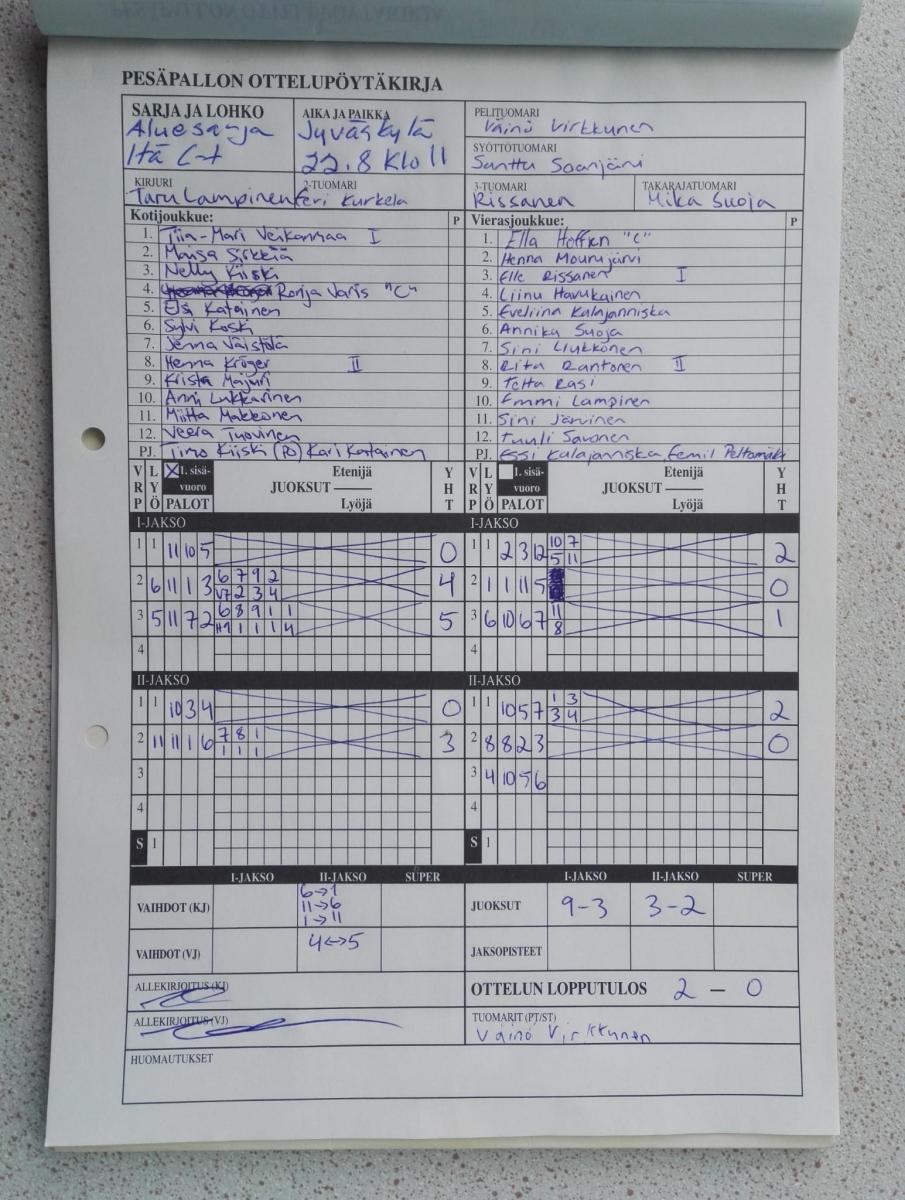 PESÄPALLON OTTELUPÖYTÄKIRJA
SARJA JA LOHKO
Aluesarja
Itä C-t
AIKA JA PAIKKA
Jyväskylä
22.8 Klo 11
PELITUOMARI
Väinö Virkkunen
SYÖTTÖTUOMARI
Santtu Saarijärvi
KIRJURI
Taru Lampinen
2-TUOMARI
Feri Kurkela
3-TUOMARI
Rissanen
TAKARAJATUOMARI
Mika Suoja
Kotijoukkue: P
1. Tiia-Mari Veikanmaa I
2. Maisa Sirkkiä
3. Nelly Kiiski
4. Ronja Varis "C"
5. Elsi Katainen
6. Sylvi Koski
7. Jenna Väistölä
8. Henna Kröger II
9. Krista Maijuri
10. Anni Lukkarinen
11. Miitta Makkonen
12. Veera Tuovinen
PJ. Timo Kiiski (PO) Kari Katainen
Vierasjoukkue: P
1. Ella Hoffren "C"
2. Henna Mourujärvi
3. Elle Rissanen I
4. Liinu Havukainen
5. Eveliina Kalajanniska
6. Annika Suoja
7. Sini Liukkonen
8. Rita Rantonen II
9. Tetta Rasi
10. Emmi Lampinen
11. Sini Järvinen
12. Tuuli Savonen
PJ. Essi Kalajanniska, Eemil Peltomäki
V R P L Y Ö X 1. sisä-vuoro PALOT Etenijä JUOKSUT Lyöjä Y H T
V R P L Y Ö 1. sisä-vuoro PALOT Etenijä JUOKSUT Lyöjä Y H T
I-JAKSO
1 1 11 10 5 0
2 6 11 1 3 6 7 9 2 4
V7 2 3 4
3 5 11 7 2 6 8 9 1 1 5
H9 1 1 1 4
4
I-JAKSO
1 1 2 3 12 10 7 2
5 11
2 1 1 11 5 0
3 6 10 6 7 11 1
8
4
II-JAKSO
1 1 10 3 4 0
2 11 11 1 6 7 8 1 3
1 1 1
3
4
S 1
II-JAKSO
1 1 10 5 7 1 3 2
3 4
2 8 8 2 3 0
3 4 10 5 6
4
S 1
I-JAKSO II-JAKSO SUPER
VAIHDOT (KJ)
6→1
11→6
1→11
VAIHDOT (VJ) 4↔5
I-JAKSO II-JAKSO SUPER
JUOKSUT 9-3 3-2
JAKSOPISTEET
ALLEKIRJOITUS (KJ)
ALLEKIRJOITUS (VJ)
OTTELUN LOPPUTULOS 2 – 0
TUOMARIT (PT/ST)
Väinö Virkkunen
HUOMAUTUKSET